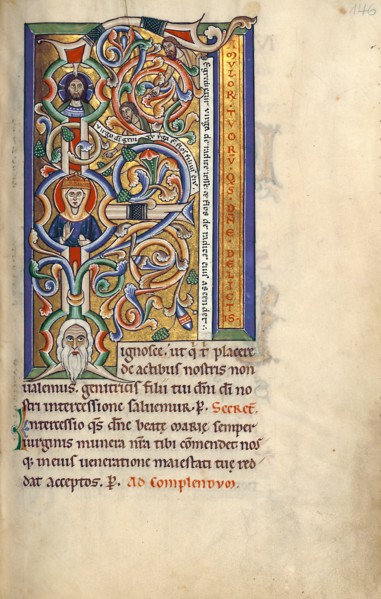 146
AMVLOR · TVORV̄ · QS · DN̄E · DELICTIS
Egredietur uirga de radice iesse & flos de radice eius ascendet
uirgo di geni uirga ē flos filius ei'
ignosce. ut q̇ t̄ placere
de actibus nostris non
ualemus. genitricis filii tui dn̄i dī no
stri intercessione saluemur. P̄. Secret̄.
Intercessio q̄s dn̄e beatę MARIĘ semper
uirginis munera nr̄a tibi cōmendet nos
q; in eius ueneratione maiestati tuę red
dat acceptos. P̄. Ad Complendum.